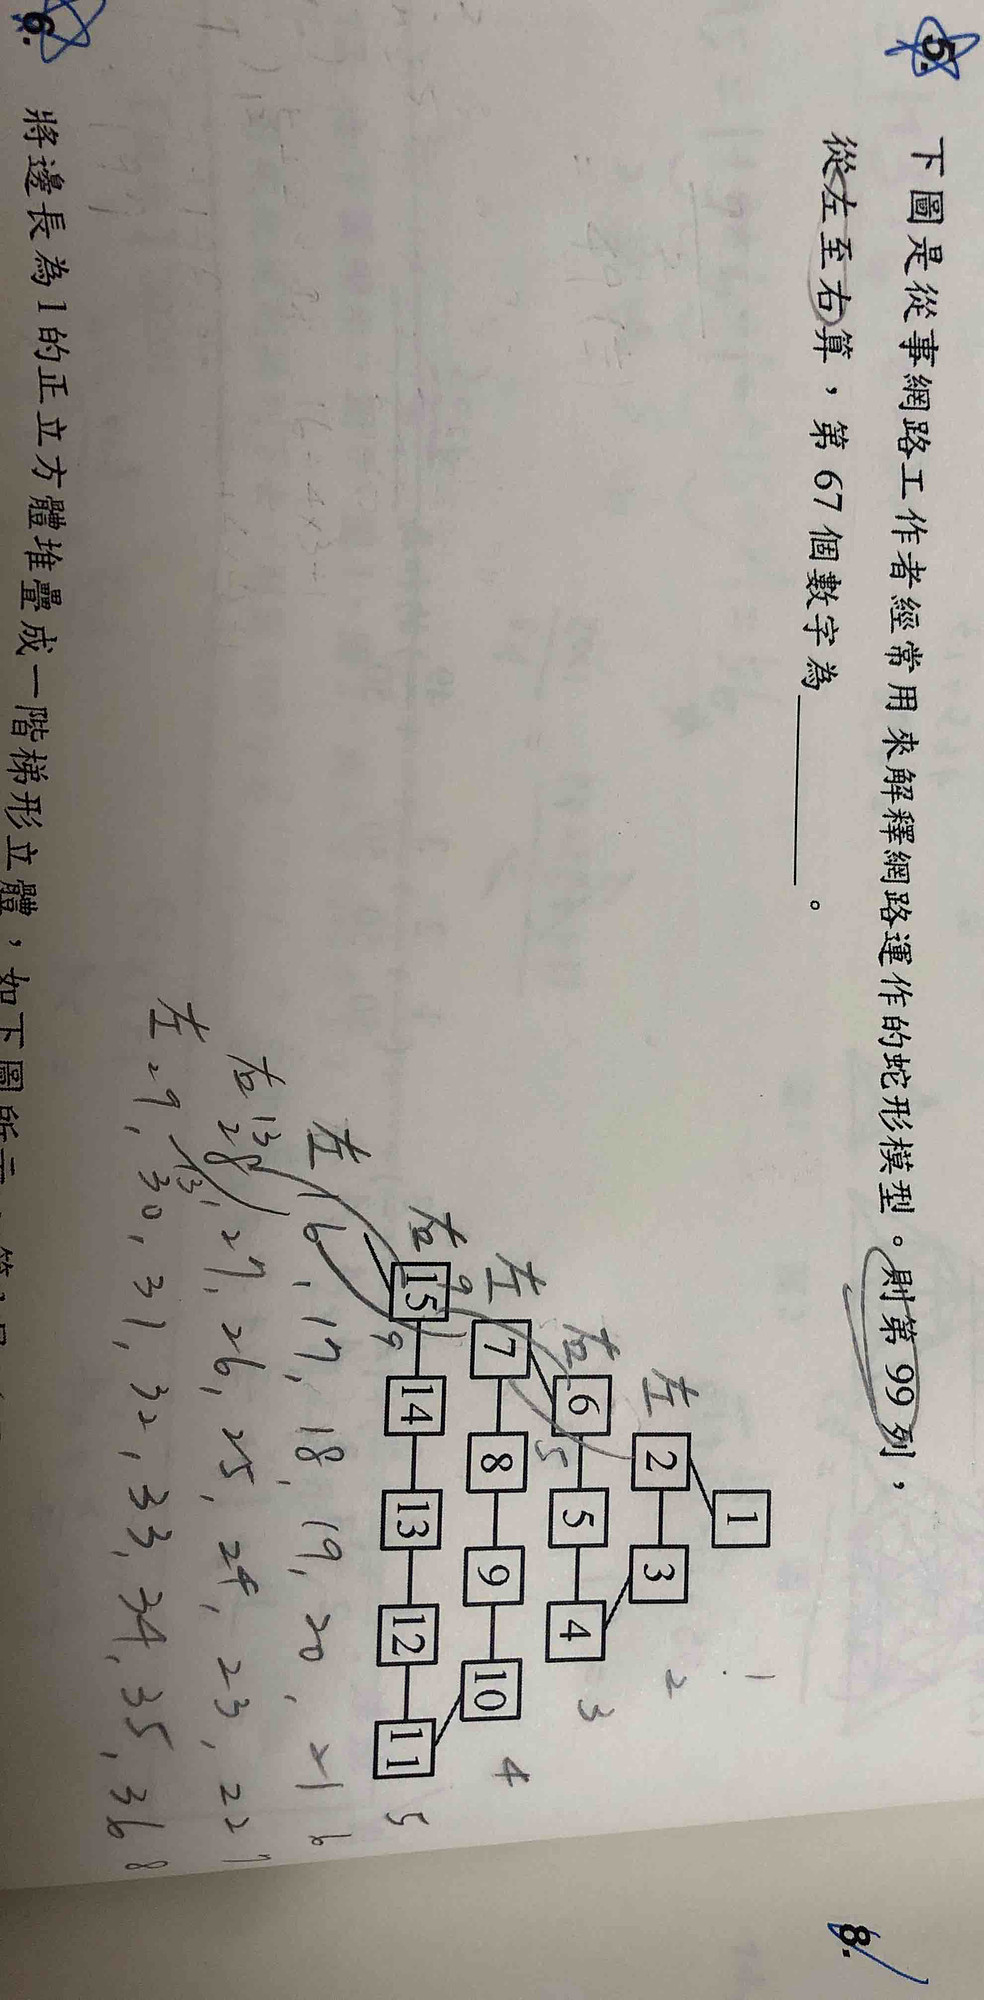 5. 下圖是從事網路工作者經常用來解釋網路運作的蛇形模型。則第 99 列，
從左至右算，第 67 個數字為________。
1 1
左 2 3 2
右 6 5 4 3
左 7 8 9 10 4
右 15 14 13 12 11 5
左 16, 17, 18, 19, 20, 21 6
右 28, 27, 26, 25, 24, 23, 22 7
左 29, 30, 31, 32, 33, 34, 35, 36 8
6. 將邊長為1的正立方體堆疊成一階梯形立體，如下圖所示
8.